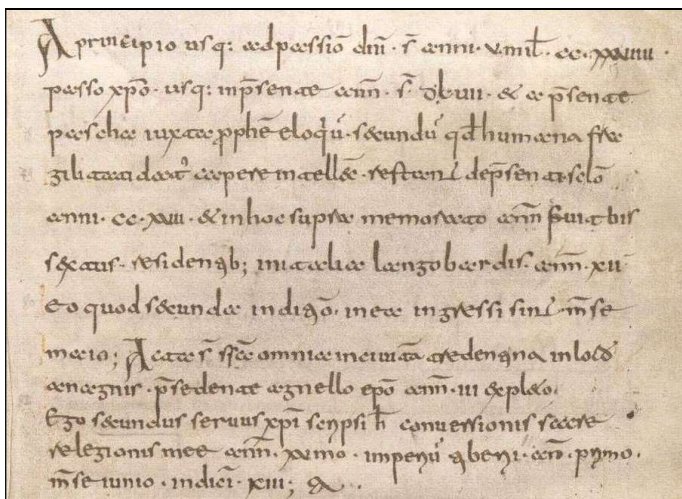 A principio usq: ad passiō dn̄i · s̄ anni · v mil̄ · cc · xxviiii ·
passo xp̄o · usq: inp̄sente ann̄ · s̄ · dxlvii · & a p̄sente
pascha iuxta prophē eloqū · secundū qđ humana fra
gilitati dat᾽ capere intellec · restant̄ dep̄senti sclō
anni · cc · xxiii · & in hoc supra memorato ann̄ fuit bis
sextus · residentib; in italia langobardis · ann̄ · xii
Eo quod secunda indictiō · in ea ingressi sint̄ · m̄se
maio; Acta s̄ s̄s̄ca omnia in civitā tredentina in locō
anagnis · p̄sedente agnello ep̄o ann̄ · iii expleto ·
Ego secundus servus xp̄i scripsi h̄ conversionis sacre
relegionis mee ann̄ · ximo · imperiū tiberii · ann̄ · primo ·
m̄se iunio · indicī · xiii;